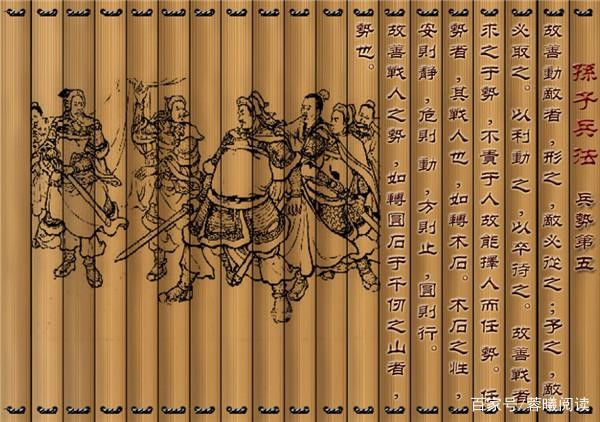 孫子兵法 兵勢第五
故善動敵者，形之，敵必從之；予之，敵
必取之。以利動之，以卒待之。故善戰者
求之于勢，不責于人故能擇人而任勢。任
勢者，其戰人也，如轉木石。木石之性，
安則静，危則動，方則止，圓則行。
故善戰人之勢，如轉圓石于千仞之山者，
勢也。
百家号/蓉曦阅读